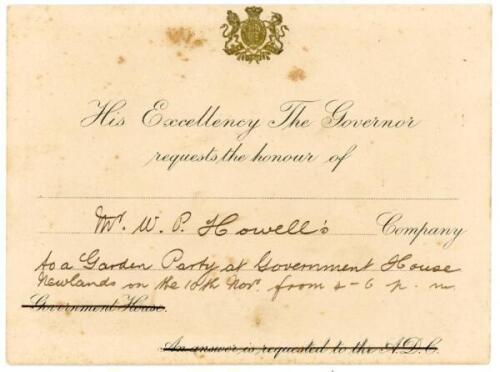 His Excellency The Governor
requests the honour of
Mr. W. P. Howell's Company
to a Garden Party at Government House
Newlands on the 10th Nov. from 4-6 p. m.
Government House.
An answer is requested to the A.D.C.